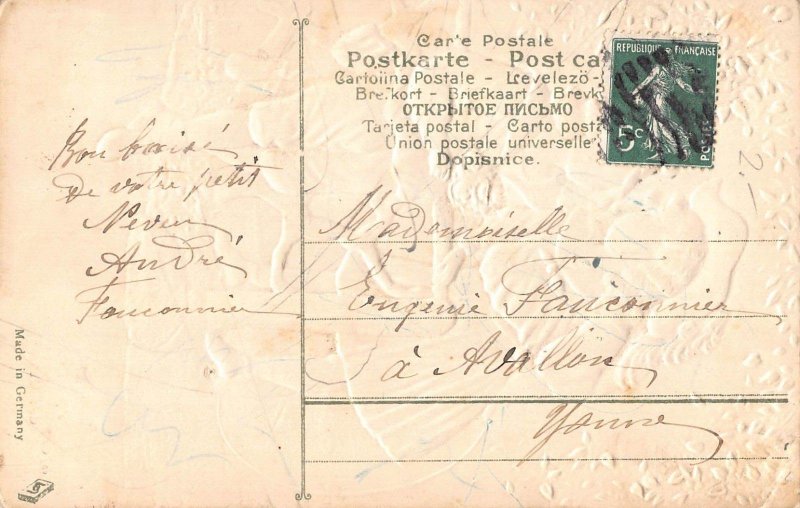 Carte Postale
Postkarte - Post ca
Cartolina Postale - Levelező-
Brefkort - Briefkaart - Brevk
ОТКРЫТОЕ ПИСЬМО
Tarjeta postal - Carto posta
Union postale universelle
Dopisnice.
REPUBLIQUE FRANÇAISE
5c
POSTES
2.-
Bon baisé
De votre petit
Neveu
André
Fauconnier
Mademoiselle
Eugenie Fauconnier
à Avallon
Yonne
Made in Germany